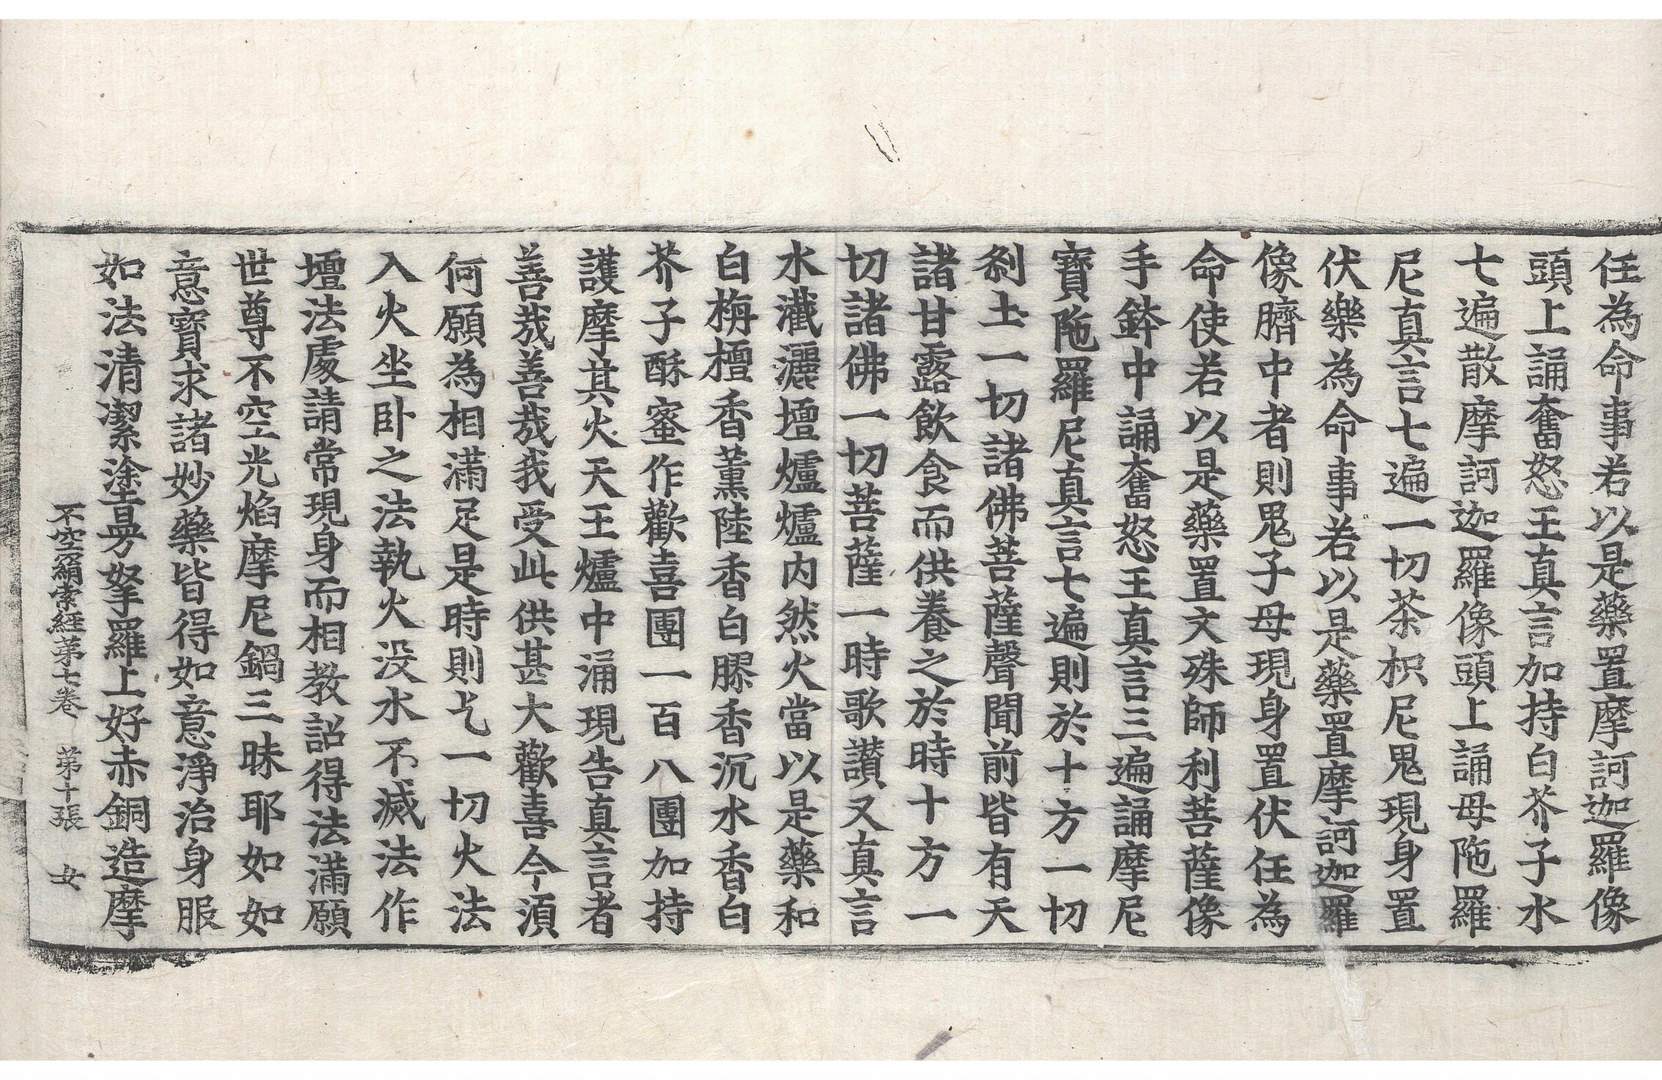 任為命事若以是藥置摩訶迦羅像
頭上誦奮怒王真言加持白芥子水
七遍散摩訶迦羅像頭上誦母陁羅
尼真言七遍一切茶枳尼鬼現身置
伏樂為命事若以是藥置摩訶迦羅
像臍中者則鬼子母現身置伏任為
命使若以是藥置文殊師利菩薩像
手鉢中誦奮怒王真言三遍誦摩尼
寶陁羅尼真言七遍則於十方一切
剎土一切諸佛菩薩聲聞前皆有天
諸甘露飲食而供養之於時十方一
切諸佛一切菩薩一時歌讃又真言
水灑灑壇爐爐内然火當以是藥和
白栴檀香薰陸香白膠香沉水香白
芥子酥蜜作歡喜團一百八團加持
護摩其火天王爐中涌現告真言者
善哉善哉我受此供甚大歡喜今湏
何願為相滿足是時則乞一切火法
入火坐卧之法執火没水不滅法作
壇法處請常現身而相教詔得法滿願
世尊不空光焰摩尼鍋三昧耶如如
意寶求諸妙藥皆得如意淨治身服
如法清潔塗曼拏羅上好赤銅造摩
不空羂索經第七卷　第十張　女